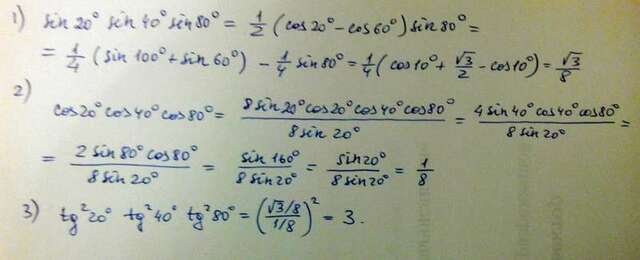 1) sin 20° sin 40° sin 80° = 1/2 (cos 20° - cos 60°) sin 80° =
= 1/4 (sin 100° + sin 60°) - 1/4 sin 80° = 1/4 (cos 10° + √3/2 - cos 10°) = √3/8
2)
cos 20° cos 40° cos 80° = 8 sin 20° cos 20° cos 40° cos 80° / 8 sin 20° = 4 sin 40° cos 40° cos 80° / 8 sin 20° =
= 2 sin 80° cos 80° / 8 sin 20° = sin 160° / 8 sin 20° = sin 20° / 8 sin 20° = 1/8
3) tg² 20° tg² 40° tg² 80° = (√3/8 / 1/8)² = 3.